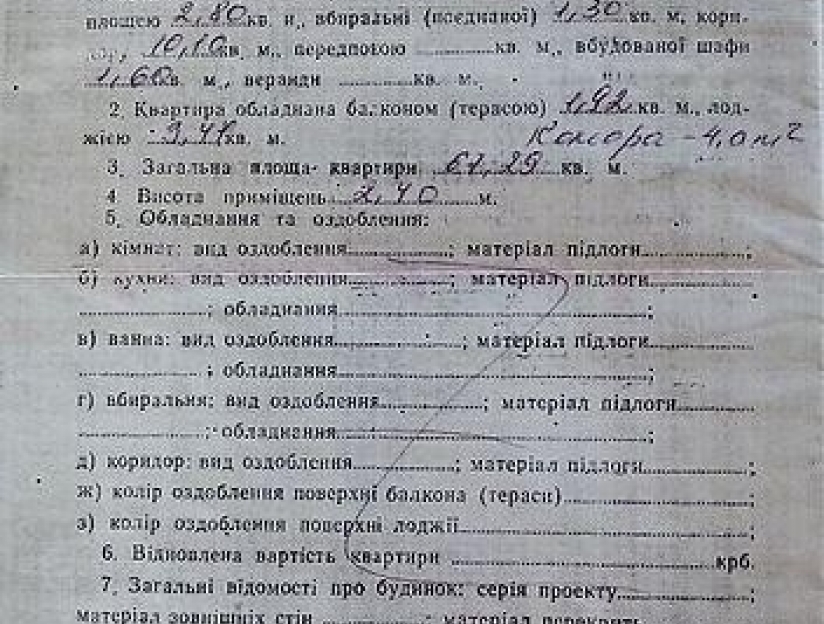 площею 2,80 кв. м., вбиральні (поєднаної) 1,30 кв. м, кори-
10,10 кв. м., передпокою ............ кв. м., вбудованої шафи
1,60 кв. м., веранди ............ кв. м.
2. Квартира обладнана балконом (терасою) 1,92 кв. м., лод-
жією 3,41 кв. м. Комора – 4,0 м²
3. Загальна площа квартири 61,29 кв. м.
4. Висота приміщень 2,40 м.
5. Обладнання та оздоблення:
а) кімнат: вид оздоблення............; матеріал підлоги............;
б) кухни: вид оздоблення............; матеріал підлоги............
............; обладнання............;
в) ванна: вид оздоблення............; матеріал підлоги............
............; обладнання............;
г) вбиральня: вид оздоблення............; матеріал підлоги............
............; обладнання............;
д) коридор: вид оздоблення............; матеріал підлоги............;
ж) колір оздоблення поверхні балкона (тераси)............;
з) колір оздоблення поверхні лоджії............;
6. Відновлена вартість квартири ............ крб.
7. Загальні відомості про будинок: серія проекту............;
матеріал зовнішніх стін ............; матеріал перекрить